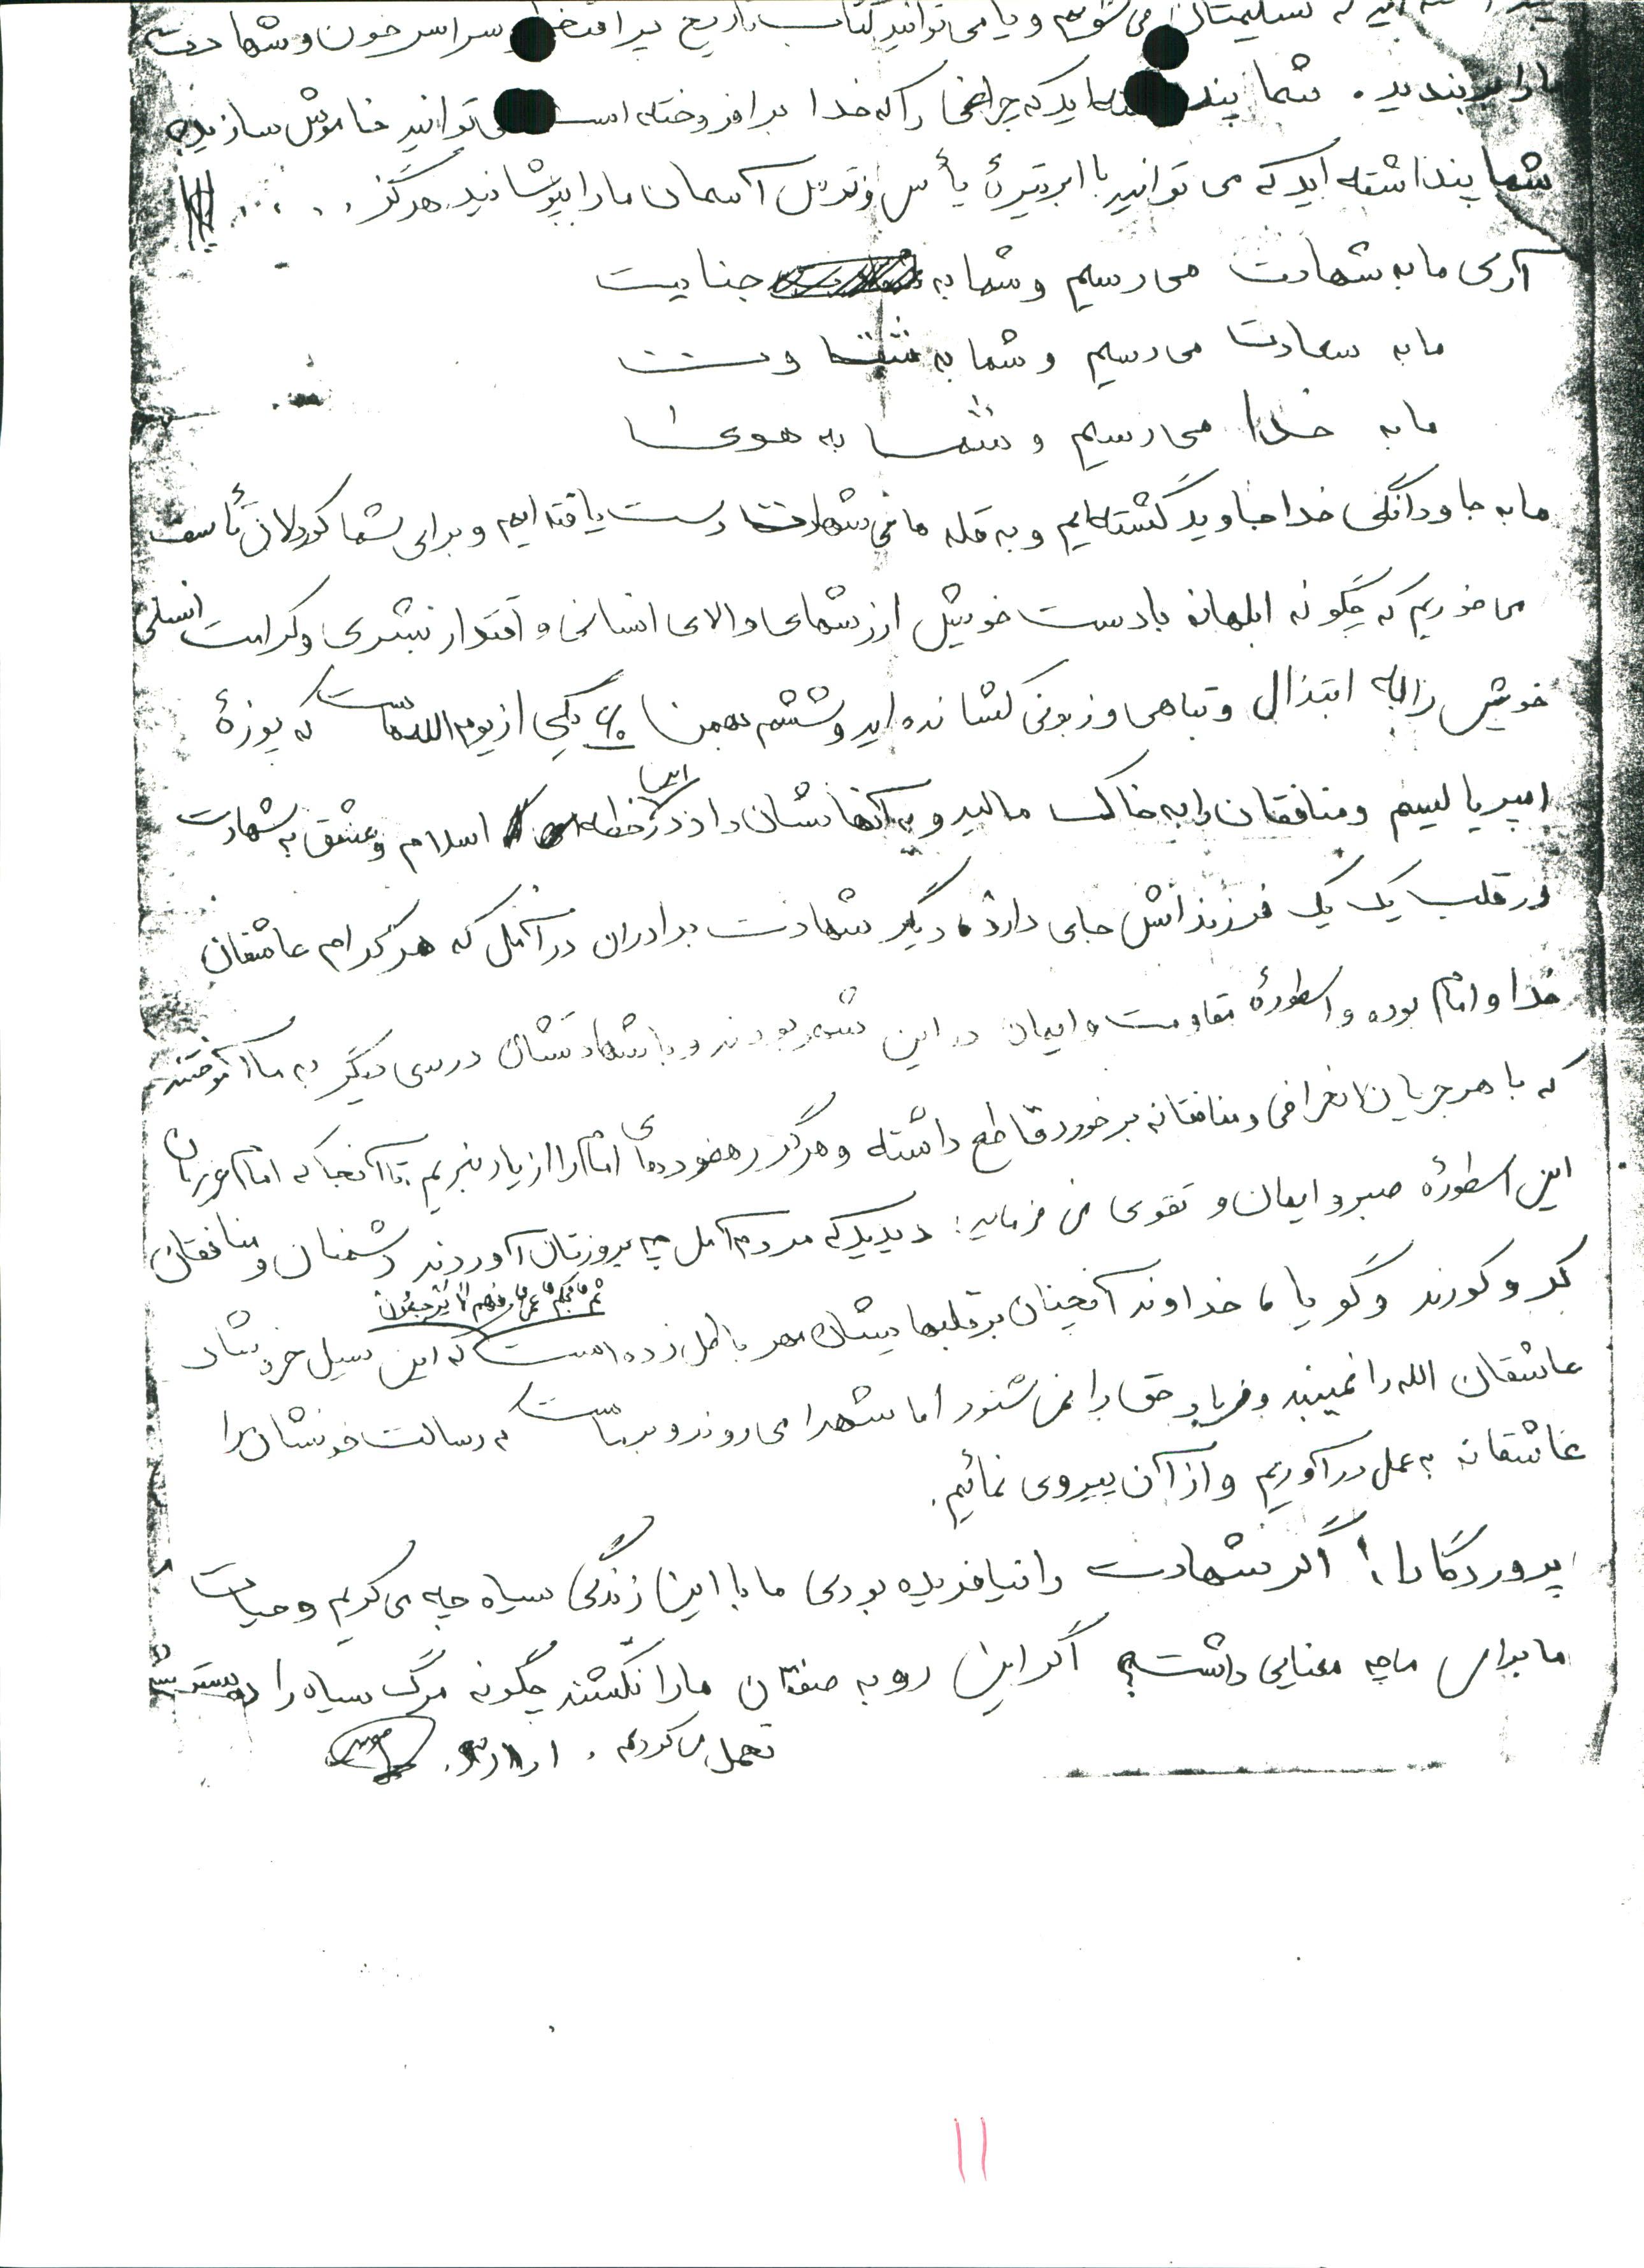 تسلیمتان می شویم و یا می توانید کتاب تاریخ پر افتخار سراسر خون و شهادت
ما را ببندید. شما پنداشته اید که چراغی را که خدا برافروخته است می توانید خاموش سازید
شما پنداشته اید که می توانید با ابر تیرهٔ یأس و تزلزل آسمان ما را بپوشانید هرگز . . . . .
آری ما به شهادت می رسیم و شما به جنایت
ما به سعادت می رسیم و شما به شقاوت
ما به خدا می رسیم و شما به هوی
ما به جاودانگی خدا جاوید گشته ایم و به قله شهادت دست یافته ایم و برای شما کوردلان تأسف
می خوریم که چگونه ابلهانه با دست خویش ارزشهای والای انسانی و اقتدار بشری و کرامت انسانی
خویش را به ابتذال و تباهی و زبونی کشانده اید و ششم بهمن ۶۰ یکی از یوم الله ماست که پوزهٔ
امپریالیسم و منافقان را به خاک مالید و به آنها نشان داد در خطه اسلام و عشق به شهادت
در قلب یک یک فرزندانش جای دارد، دیگر شهادت برادران در آمل که هر کدام عاشقان
خدا و امام بوده و اسطورهٔ مقاومت و ایمان در این شهر بودند و با شهادتشان درسی دیگر به ما آموختند
که با هر جریان انحرافی و منافقانه برخورد قاطع داشته و هرگز رهنمودهای امام را از یاد نبریم تا آنجا که امام عزیزمان
این اسطورهٔ صبر و ایمان و تقوی می فرماید: دیدید که مردم آمل چه بروزتان آوردند دشمنان و منافقان
کر و کورند و گویا، خداوند آنچنان بر قلبهایشان مهر باطل زده است که این سیل خروشان
صم بکم عمی فهم لا یرجعون
عاشقان الله را نمی بینند و فریاد حق را نمی شنود اما شهدا می روند و بر ماست که رسالت خونشان را
عاشقانه به عمل در آوریم و از آن پیروی نمائیم.
پروردگارا! اگر شهادت را نیافریده بودی ما با این زندگی سیاه چه می کردیم و حیات
ما برای ما چه معنایی داشت؟ اگر این روبه صفتان ما را نکشند چگونه مرگ سیاه را در بستر
تحمل می کردیم.
۱۱